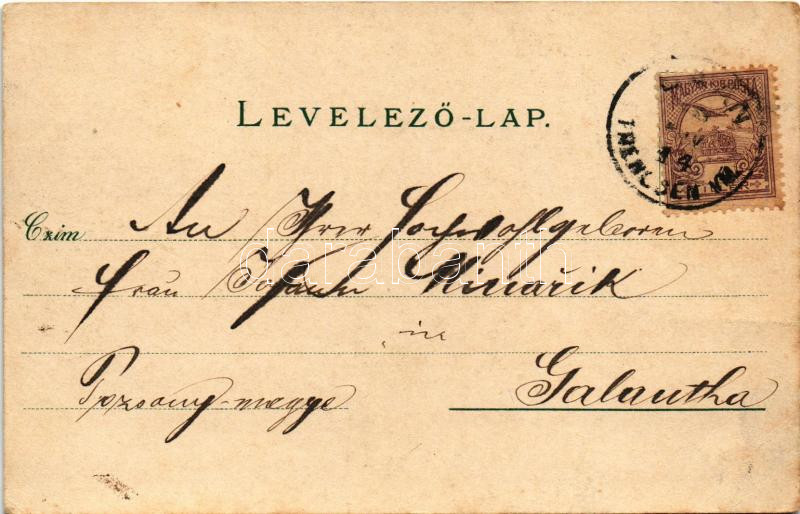 LEVELEZŐ-LAP.
MAGYAR KIR. POSTA
TRENCSÉN VM.
Czim An Ihrer Hochwohlgeboren
Frau Johann Minařik
in
Pozsony-megye Galantha
darabanth